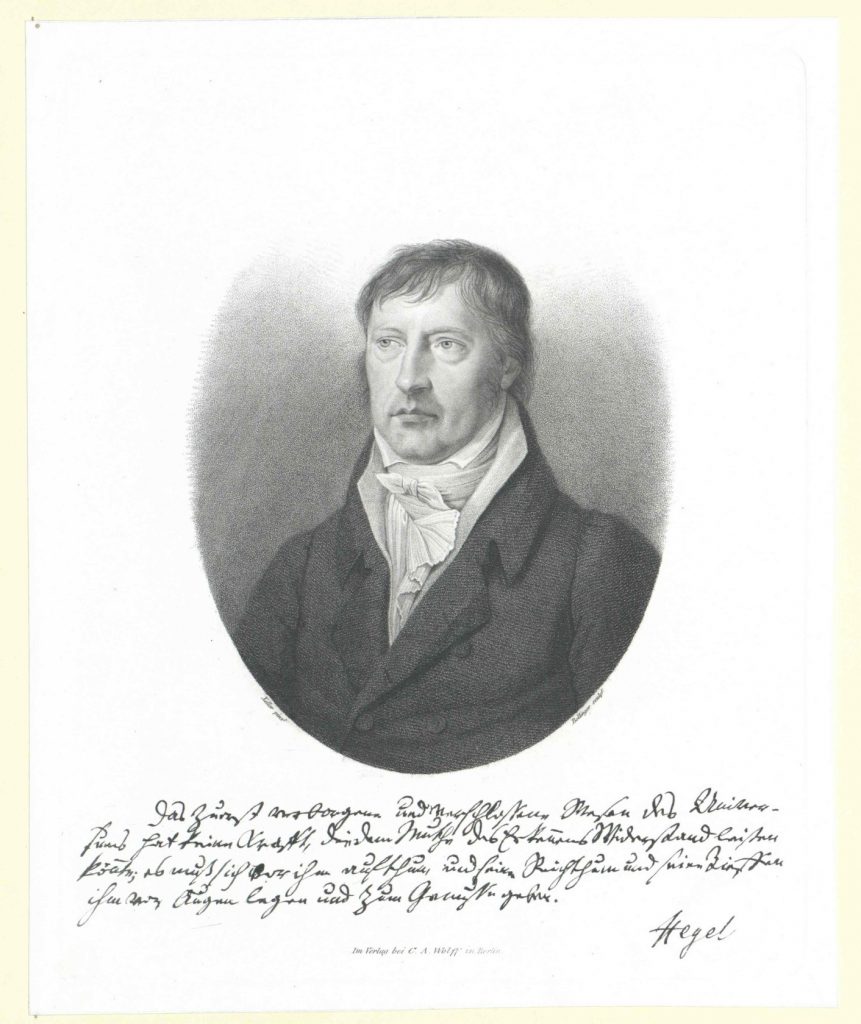 Xeller pinxt
Bollinger sculpt
Das zuerst verborgene und verschlossene Wesen des Univer-
sums hat keine Krafft, die dem Muthe des Erkennens Widerstand leisten
könnte; es muß sich vor ihm aufthun, und seinen Reichthum und seine Tieffen
ihm vor Augen legen und zum Genusse geben.
Hegel
Im Verlag bei C. A. Wolff in Berlin